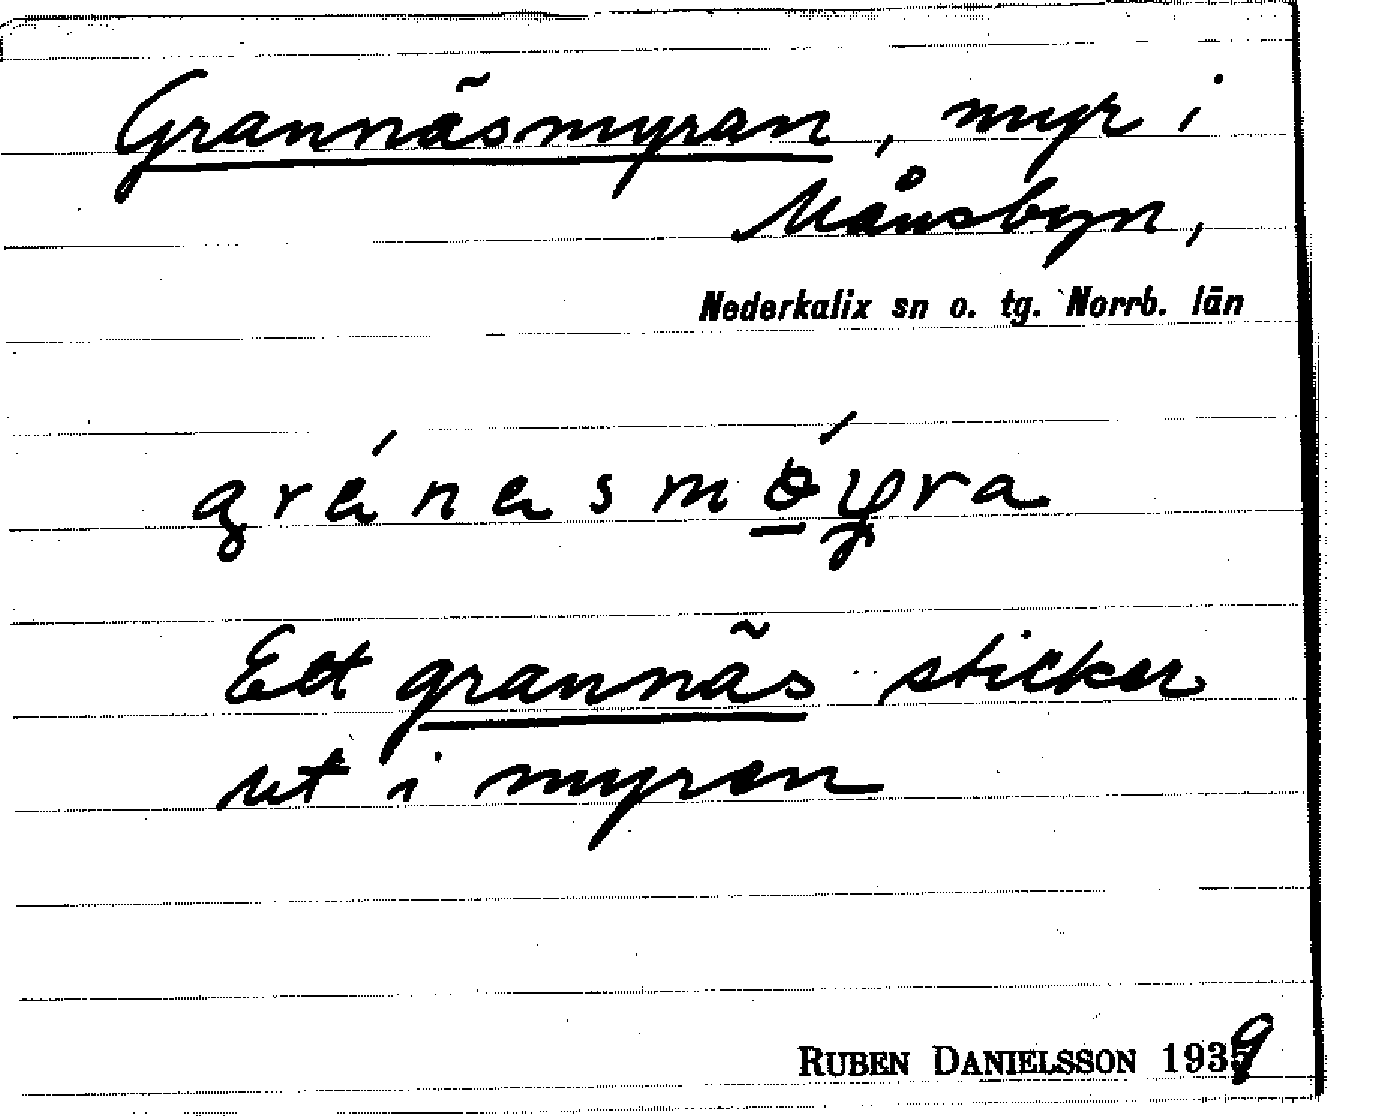 Grannäsmyran, myr i
Månsbyn,
Nederkalix sn o. tg. Norrb. län
Ett grannäs sticker
ut i myran
RUBEN DANIELSSON 1939